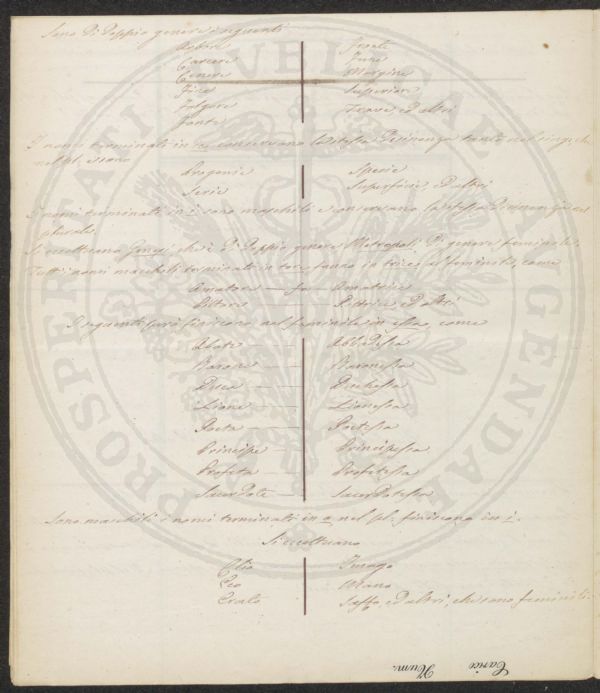 Sono di doppio genere i seguenti
Carcere Fune
Cenere Margine
Fine
Folgore Trave, ed altri
Fonte
I nomi terminati in ie conservano la stessa desinenza tanto nel sing. che
nel pl. e sono
Progenie Specie
Serie Superficie, ed altri
I nomi terminati in i sono maschili e conservano la stessa desinenza nel
plurale.
Si eccettuano Genesi che è di doppio genere Metropoli di genere feminile.
Tutti i nomi maschili terminati in tore, fanno in trice, al feminile, come
Amatore fa Amatrice
Pittore Pittrice, ed altri
I seguenti però finiscono nel feminile in essa, come
Abate Abbadessa
Barone Baronessa
Duca Duchessa
Lione Lionessa
Poeta Poetessa
Principe Principessa
Profeta Profetessa
Sacerdote Sacerdotessa
Sono maschili i nomi terminati in o nel pl. finiscono in i.
Si eccettuano
Clio Imago
Eco Mano
Erato Saffo, ed altri, che sono feminili.
PROSPERITATI PVBLICAE AVGENDAE